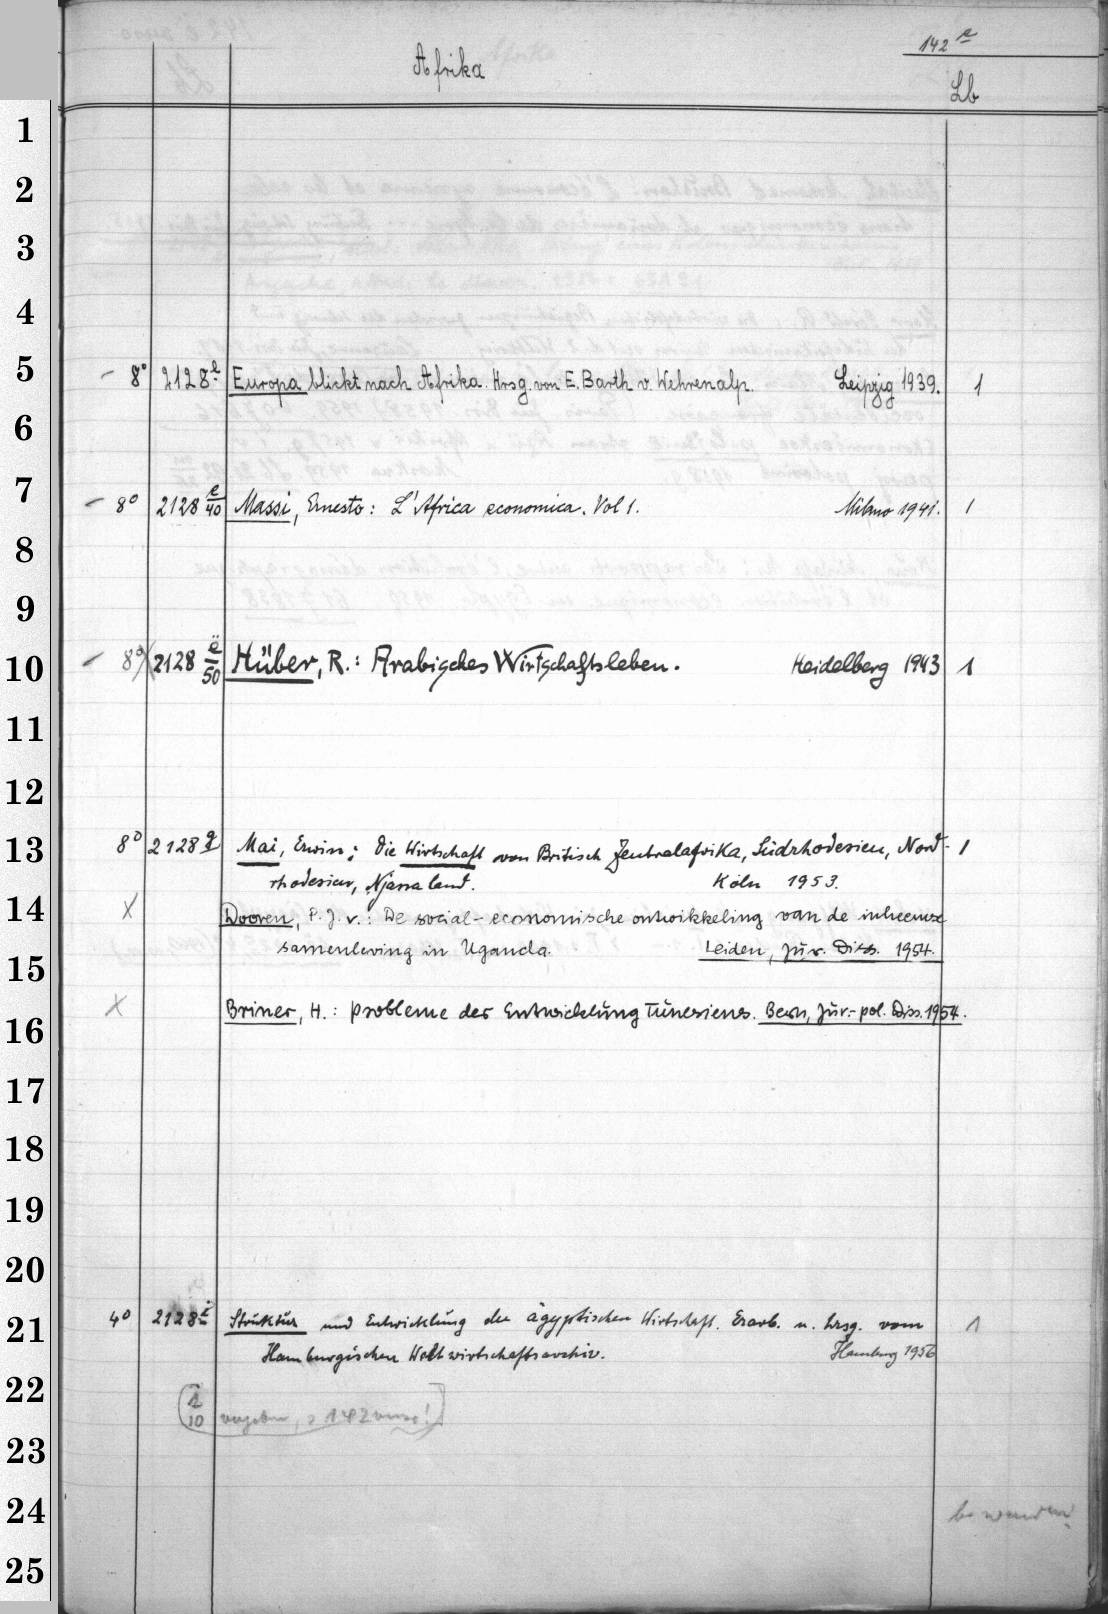 142 e
Afrika
Lb
– 8° 2128 e Europa blickt nach Afrika. Hrsg. von E. Barth v. Wehrenalp. Leipzig 1939. 1
– 8° 2128 e/40 Massi, Ernesto: L'Africa economica. Vol 1. Milano 1941. 1
– 8° 2128 ë/50 Hüber, R.: Arabisches Wirtschaftsleben. Heidelberg 1943 1
8° 2128 g Mai, Erwin: Die Wirtschaft von Britisch Zentralafrika, Südrhodesien, Nord- 1
rhodesien, Njassaland. Köln 1953.
X Dooren, P. J. v.: De social-economische ontwikkeling van de inheemse
samenleving in Uganda. Leiden, Jur. Diss. 1954.
X Briner, H.: Probleme der Entwicklung Tunesiens. Bern, Jur.-pol. Diss. 1954.
4° 2128 i Struktur und Entwicklung der ägyptischen Wirtschaft. Erarb. u. hrsg. vom 1
Hamburgischen Weltwirtschaftsarchiv. Hamburg 1956
1/10 vergeben, s 142 verso!
wenden
1
2
3
4
5
6
7
8
9
10
11
12
13
14
15
16
17
18
19
20
21
22
23
24
25